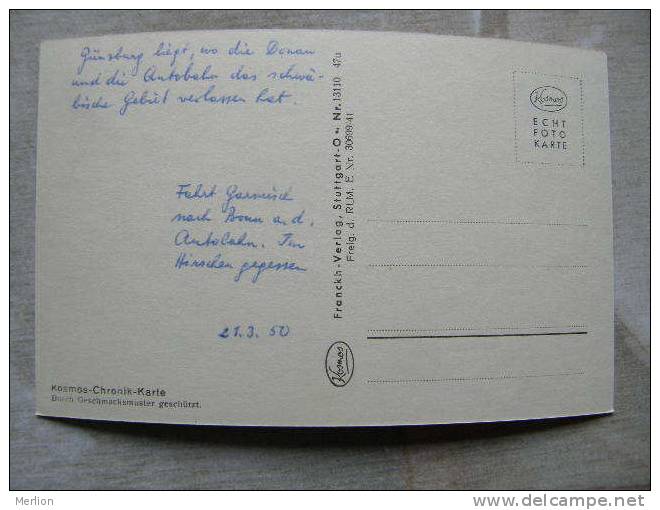 Günsburg liegt, wo die Donau
und die Autobahn das schwä-
bische Gebiet verlassen hat.
Fahrt Garmisch
nach Bonn a. d.
Autobahn. Im
Hirschen gegessen
21.3.50
Kosmos-Chronik-Karte
Durch Geschmacksmuster geschützt.
Franckh-Verlag, Stuttgart-O • Nr. 13110 47u
Freig. d. RLM. E. Nr. 30699/41
Kosmos
Kosmos
ECHT
FOTO
KARTE
Merlion
www.delcampe.net